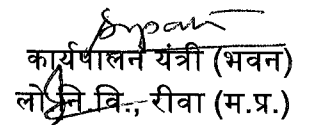 कार्यपालन यंत्री (भवन)
लो.नि.वि., रीवा (म.प्र.)